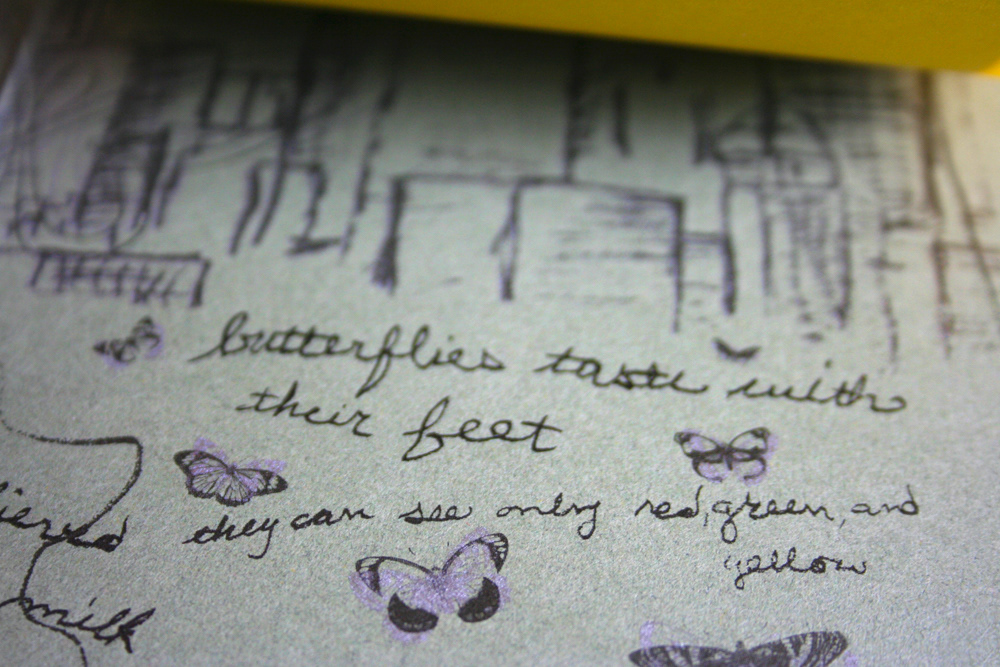 butterflies taste with
their feet
they can see only red, green, and
yellow
milk